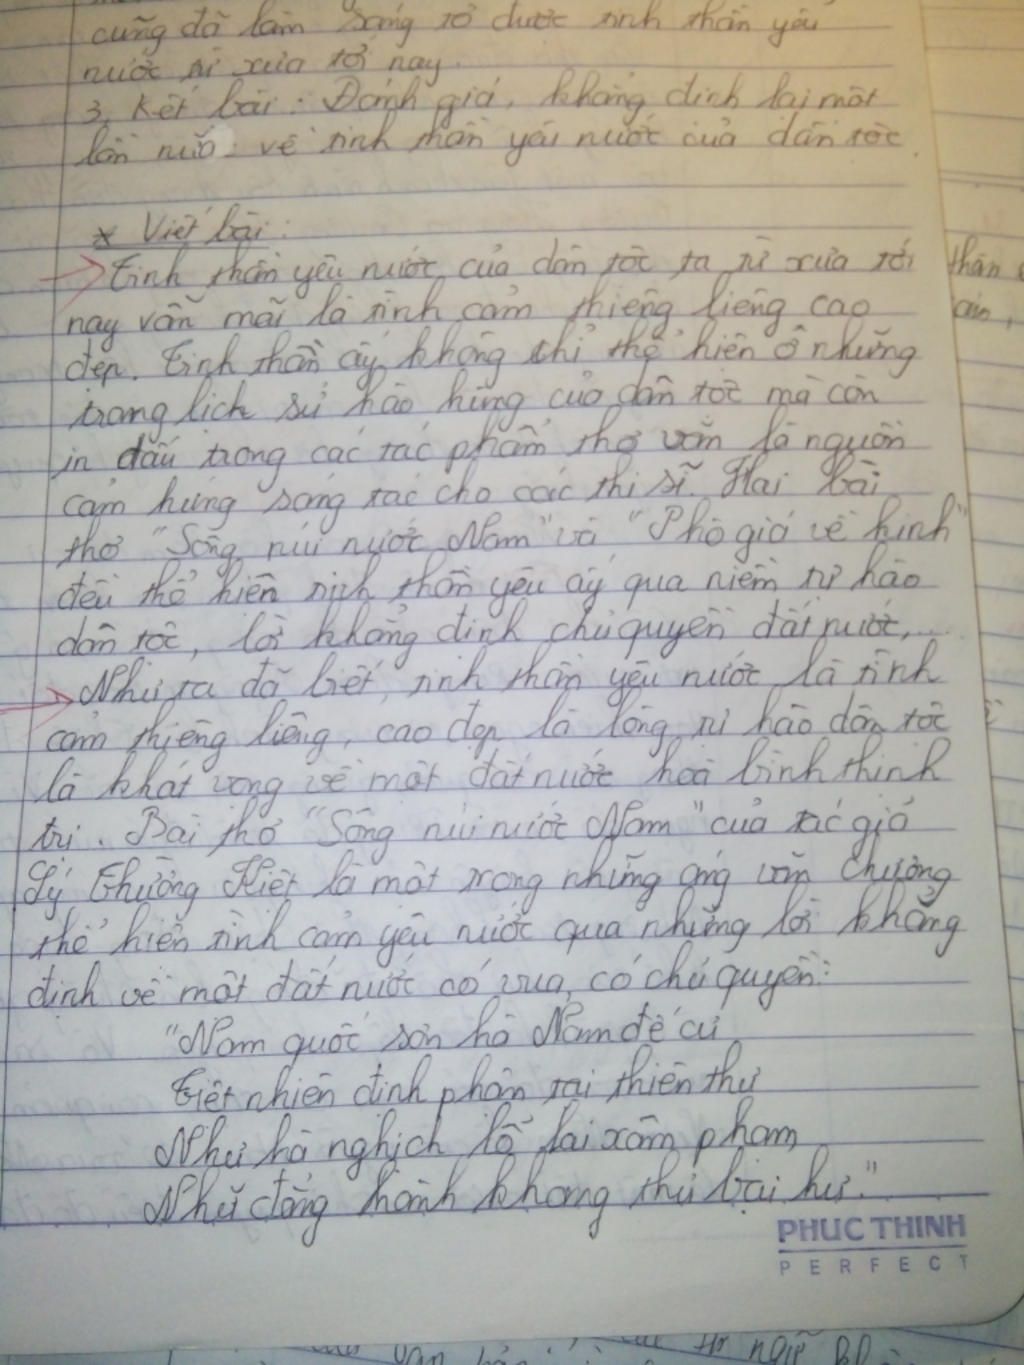 cũng đã làm sáng tỏ được tinh thần yêu
nước từ xưa tới nay.
3, Kết bài : Đánh giá, khẳng định lại một
lần nữa về tinh thần yêu nước của dân tộc.
* Viết bài :
Tinh thần yêu nước của dân tộc ta từ xưa tới
nay vẫn mãi là tình cảm thiêng liêng cao
đẹp. Tinh thần ấy không chỉ thể hiện ở những
trang lịch sử hào hùng của dân tộc mà còn
in dấu trong các tác phẩm thơ văn là nguồn
cảm hứng sáng tác cho các thi sĩ. Hai bài
thơ "Sông núi nước Nam" và "Phò giá về kinh"
đều thể hiện tinh thần yêu ấy qua niềm tự hào
dân tộc, lời khẳng định chủ quyền đất nước,...
Như ta đã biết, tinh thần yêu nước là tình
cảm thiêng liêng, cao đẹp là lòng tự hào dân tộc
là khát vọng về một đất nước hoà bình thịnh
trị. Bài thơ "Sông núi nước Nam" của tác giả
Lý Thường Kiệt là một trong những áng văn chương
thể hiện tình cảm yêu nước qua những lời khẳng
định về một đất nước có vua, có chủ quyền:
"Nam quốc sơn hà Nam đế cư
Tiệt nhiên định phận tại thiên thư
Như hà nghịch lỗ lai xâm phạm
Nhữ đẳng hành khang thủ bại hư."
PHUC THINH
PERFECT
thần